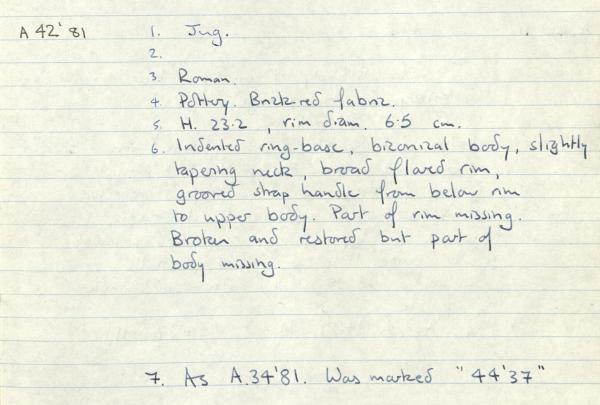 A 42'81 1. Jug.
2.
3. Roman.
4. Pottery. Brick red fabric.
5. H. 23.2, rim diam. 6.5 cm.
6. Indented ring-base, biconical body, slightly
tapering neck, broad flared rim,
grooved strap handle from below rim
to upper body. Part of rim missing.
Broken and restored but part of
body missing.
7. As A.34'81. Was marked "44'37"